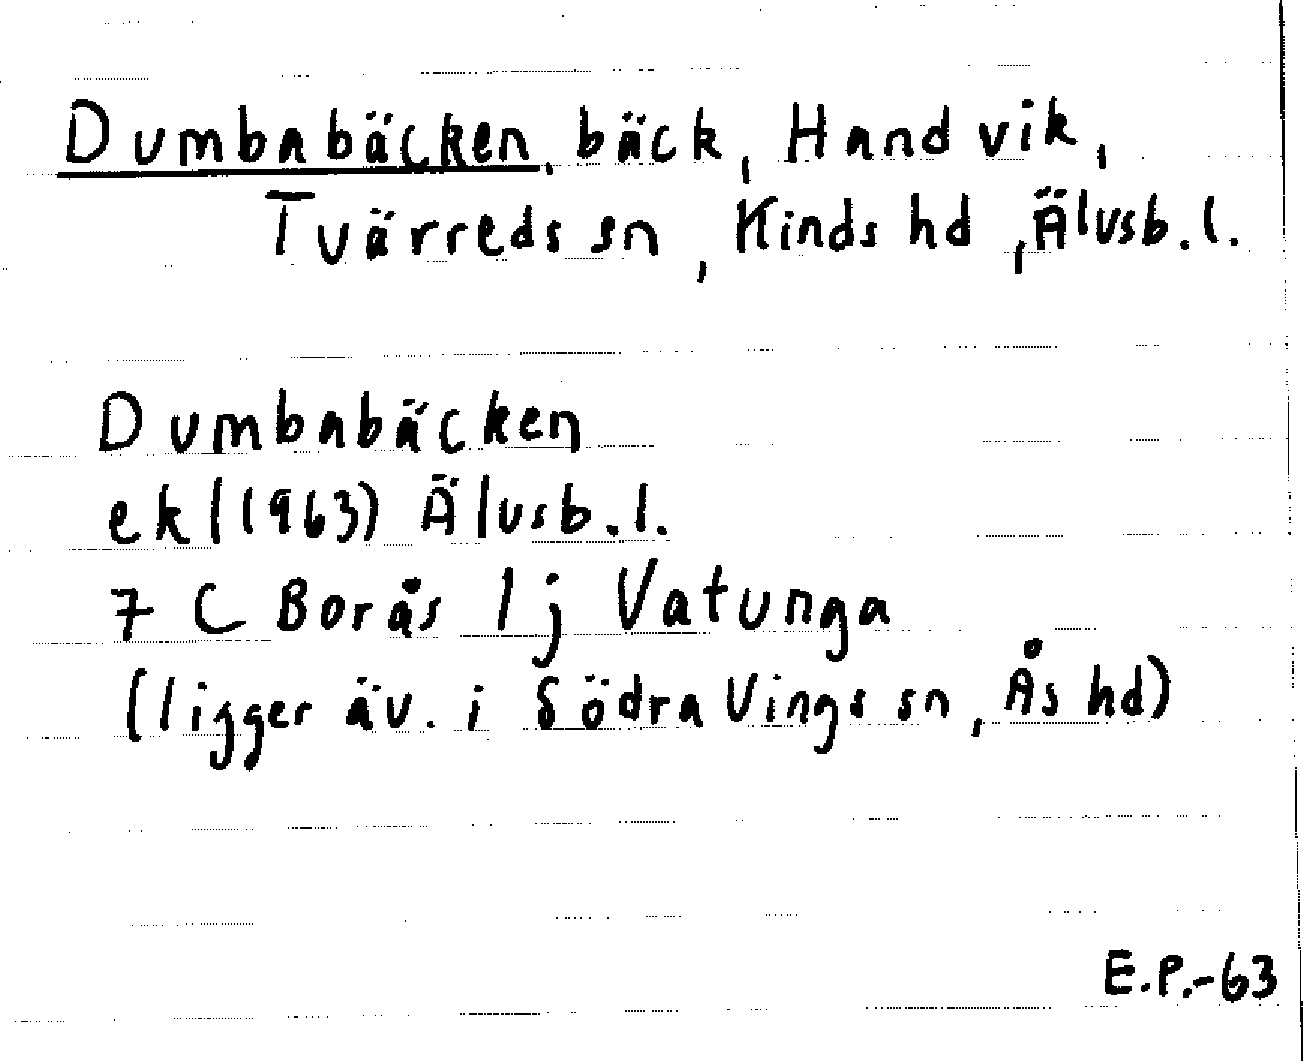 Dumbabäcken, bäck, Handvik,
Tvärreds sn, Kinds hd, Älvsb. l.
Dumbabäcken
ekl (1963) Älvsb. l.
7 C Borås 1j Vatunga
(ligger äv. i Södra Vings sn, Ås hd)
E.P.-63